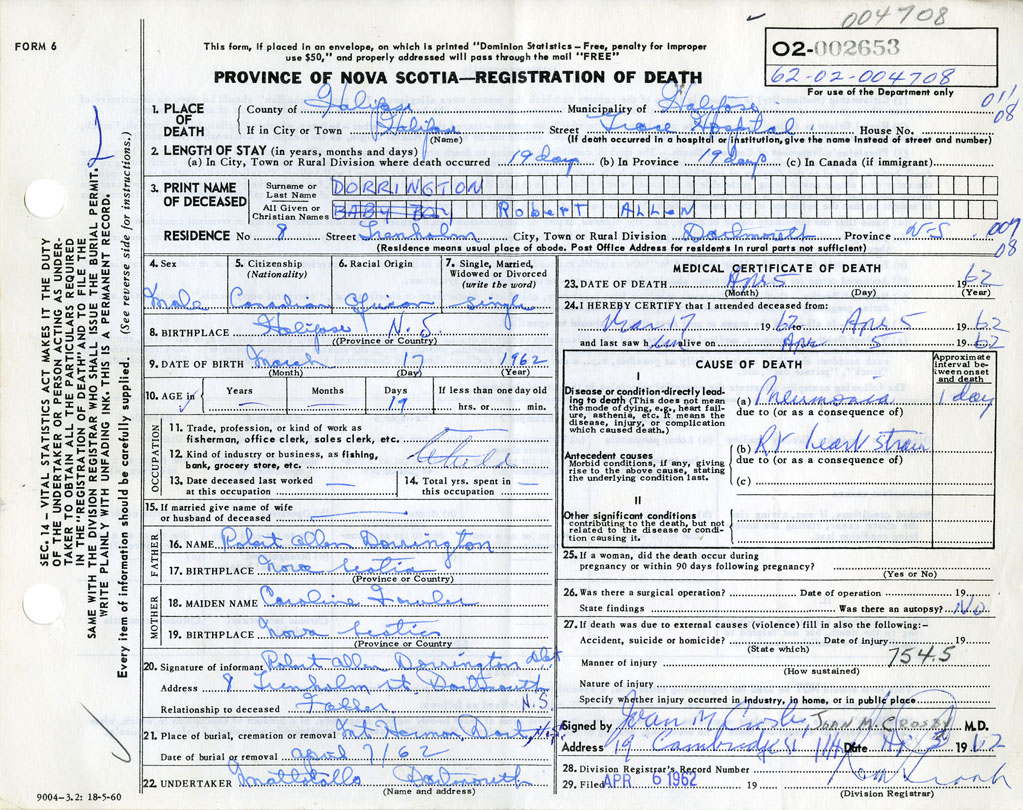 004708
FORM 6
This form, if placed in an envelope, on which is printed "Dominion Statistics – Free, penalty for improper
use $50," and properly addressed will pass through the mail "FREE"
02-002653
62-02-004708
For use of the Department only
PROVINCE OF NOVA SCOTIA—REGISTRATION OF DEATH
011
08
1. PLACE OF DEATH
County of Halifax Municipality of Halifax
If in City or Town Halifax Street Grace Hospital House No.
(Name) (If death occurred in a hospital or institution, give the name instead of street and number)
2. LENGTH OF STAY (in years, months and days)
(a) In City, Town or Rural Division where death occurred 19 days (b) In Province 19 days (c) In Canada (if immigrant)
3. PRINT NAME OF DECEASED
Surname or Last Name DORRINGTON
All Given or Christian Names BABY BOY ROBERT ALLEN
RESIDENCE No 8 Street Trenholm City, Town or Rural Division Dartmouth Province N-S
009
08
(Residence means usual place of abode. Post Office Address for residents in rural parts not sufficient)
4. Sex Male
5. Citizenship (Nationality) Canadian
6. Racial Origin
7. Single, Married, Widowed or Divorced (write the word) Single
8. BIRTHPLACE Halifax N.S.
(Province or Country)
9. DATE OF BIRTH March 17 1962
(Month) (Day) (Year)
10. AGE in Years Months Days 19 If less than one day old hrs. or min.
OCCUPATION
11. Trade, profession, or kind of work as
fisherman, office clerk, sales clerk, etc.
12. Kind of industry or business, as fishing,
bank, grocery store, etc.
Child
13. Date deceased last worked at this occupation
14. Total yrs. spent in this occupation
15. If married give name of wife
or husband of deceased
FATHER
16. NAME Robert Allen Dorrington
17. BIRTHPLACE Nova Scotia
(Province or Country)
MOTHER
18. MAIDEN NAME Caroline Fowler
19. BIRTHPLACE Nova Scotia
(Province or Country)
20. Signature of informant Robert Allen Dorrington
Address 8 Trenholm St Dartmouth N.S.
Relationship to deceased Father
21. Place of burial, cremation or removal Mt Hermon Dart
Date of burial or removal April 7/62
22. UNDERTAKER Dartmouth
(Name and address)
9004–3.2: 18-5-60
MEDICAL CERTIFICATE OF DEATH
23. DATE OF DEATH Apr 5 1962
(Month) (Day) (Year)
24. I HEREBY CERTIFY that I attended deceased from:
Mar 17 1962 to Apr 5 1962
and last saw him alive on Apr 5 1962
CAUSE OF DEATH
Approximate interval between onset and death
I
Disease or condition directly leading to death (This does not mean the mode of dying, e.g., heart failure, asthenia, etc. It means the disease, injury, or complication which caused death.)
(a) Pneumonia 1 day
due to (or as a consequence of)
Antecedent causes
Morbid conditions, if any, giving rise to the above cause, stating the underlying condition last.
(b) Rt heart strain
due to (or as a consequence of)
(c)
II
Other significant conditions
contributing to the death, but not related to the disease or condition causing it.
25. If a woman, did the death occur during
pregnancy or within 90 days following pregnancy?
(Yes or No)
26. Was there a surgical operation? Date of operation 19
State findings Was there an autopsy? No
27. If death was due to external causes (violence) fill in also the following:–
Accident, suicide or homicide? Date of injury 19
(State which)
754.5
Manner of injury
(How sustained)
Nature of injury
Specify whether injury occurred in industry, in home, or in public place
Signed by Joan M Crosby JOAN M. CROSBY M.D.
Address 19 Cambridge St Date 1962
28. Division Registrar's Record Number
29. Filed APR 6 1962 19
(Division Registrar)
SEC. 14 – VITAL STATISTICS ACT MAKES IT THE DUTY
OF THE UNDERTAKER OR PERSON ACTING AS UNDER-
TAKER TO OBTAIN ALL THE PARTICULARS REQUIRED
IN THE "REGISTRATION OF DEATH" AND TO FILE THE
SAME WITH THE DIVISION REGISTRAR WHO SHALL ISSUE THE BURIAL PERMIT.
WRITE PLAINLY WITH UNFADING INK. THIS IS A PERMANENT RECORD.
Every item of information should be carefully supplied. (See reverse side for instructions.)